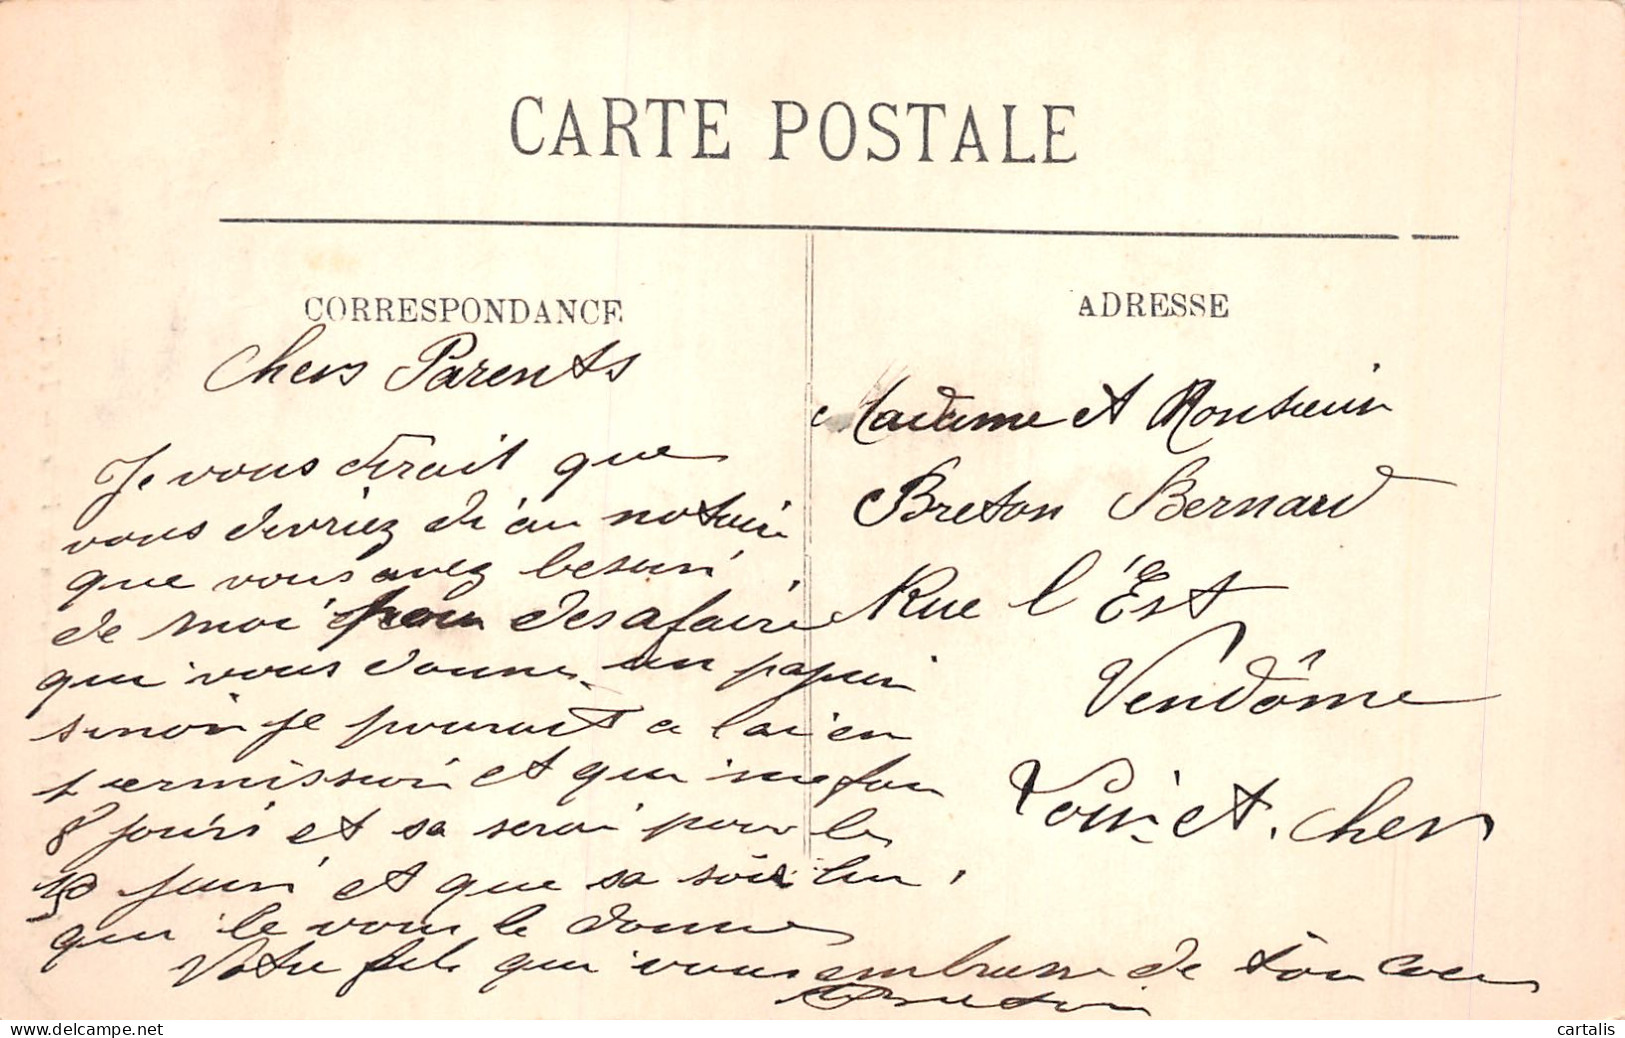 CARTE POSTALE
CORRESPONDANCE
Chers Parents
Je vous dirait que
vous devriez di a un notair
que vous avez besuin
de moi pour des afaire
qui vous donne un papier
sinon je pourait a lai en
permission et qui me fau
8 jours et sa serai pour le
10 juin et que sa soi lui
qui le vous le donne
Votre fils qui vous embrasse de ton coeur
ADRESSE
Madame et Monsieur
Breton Bernard
Rue l'Est
Vendôme
Loir et Cher
cartalis
© delcampe.net